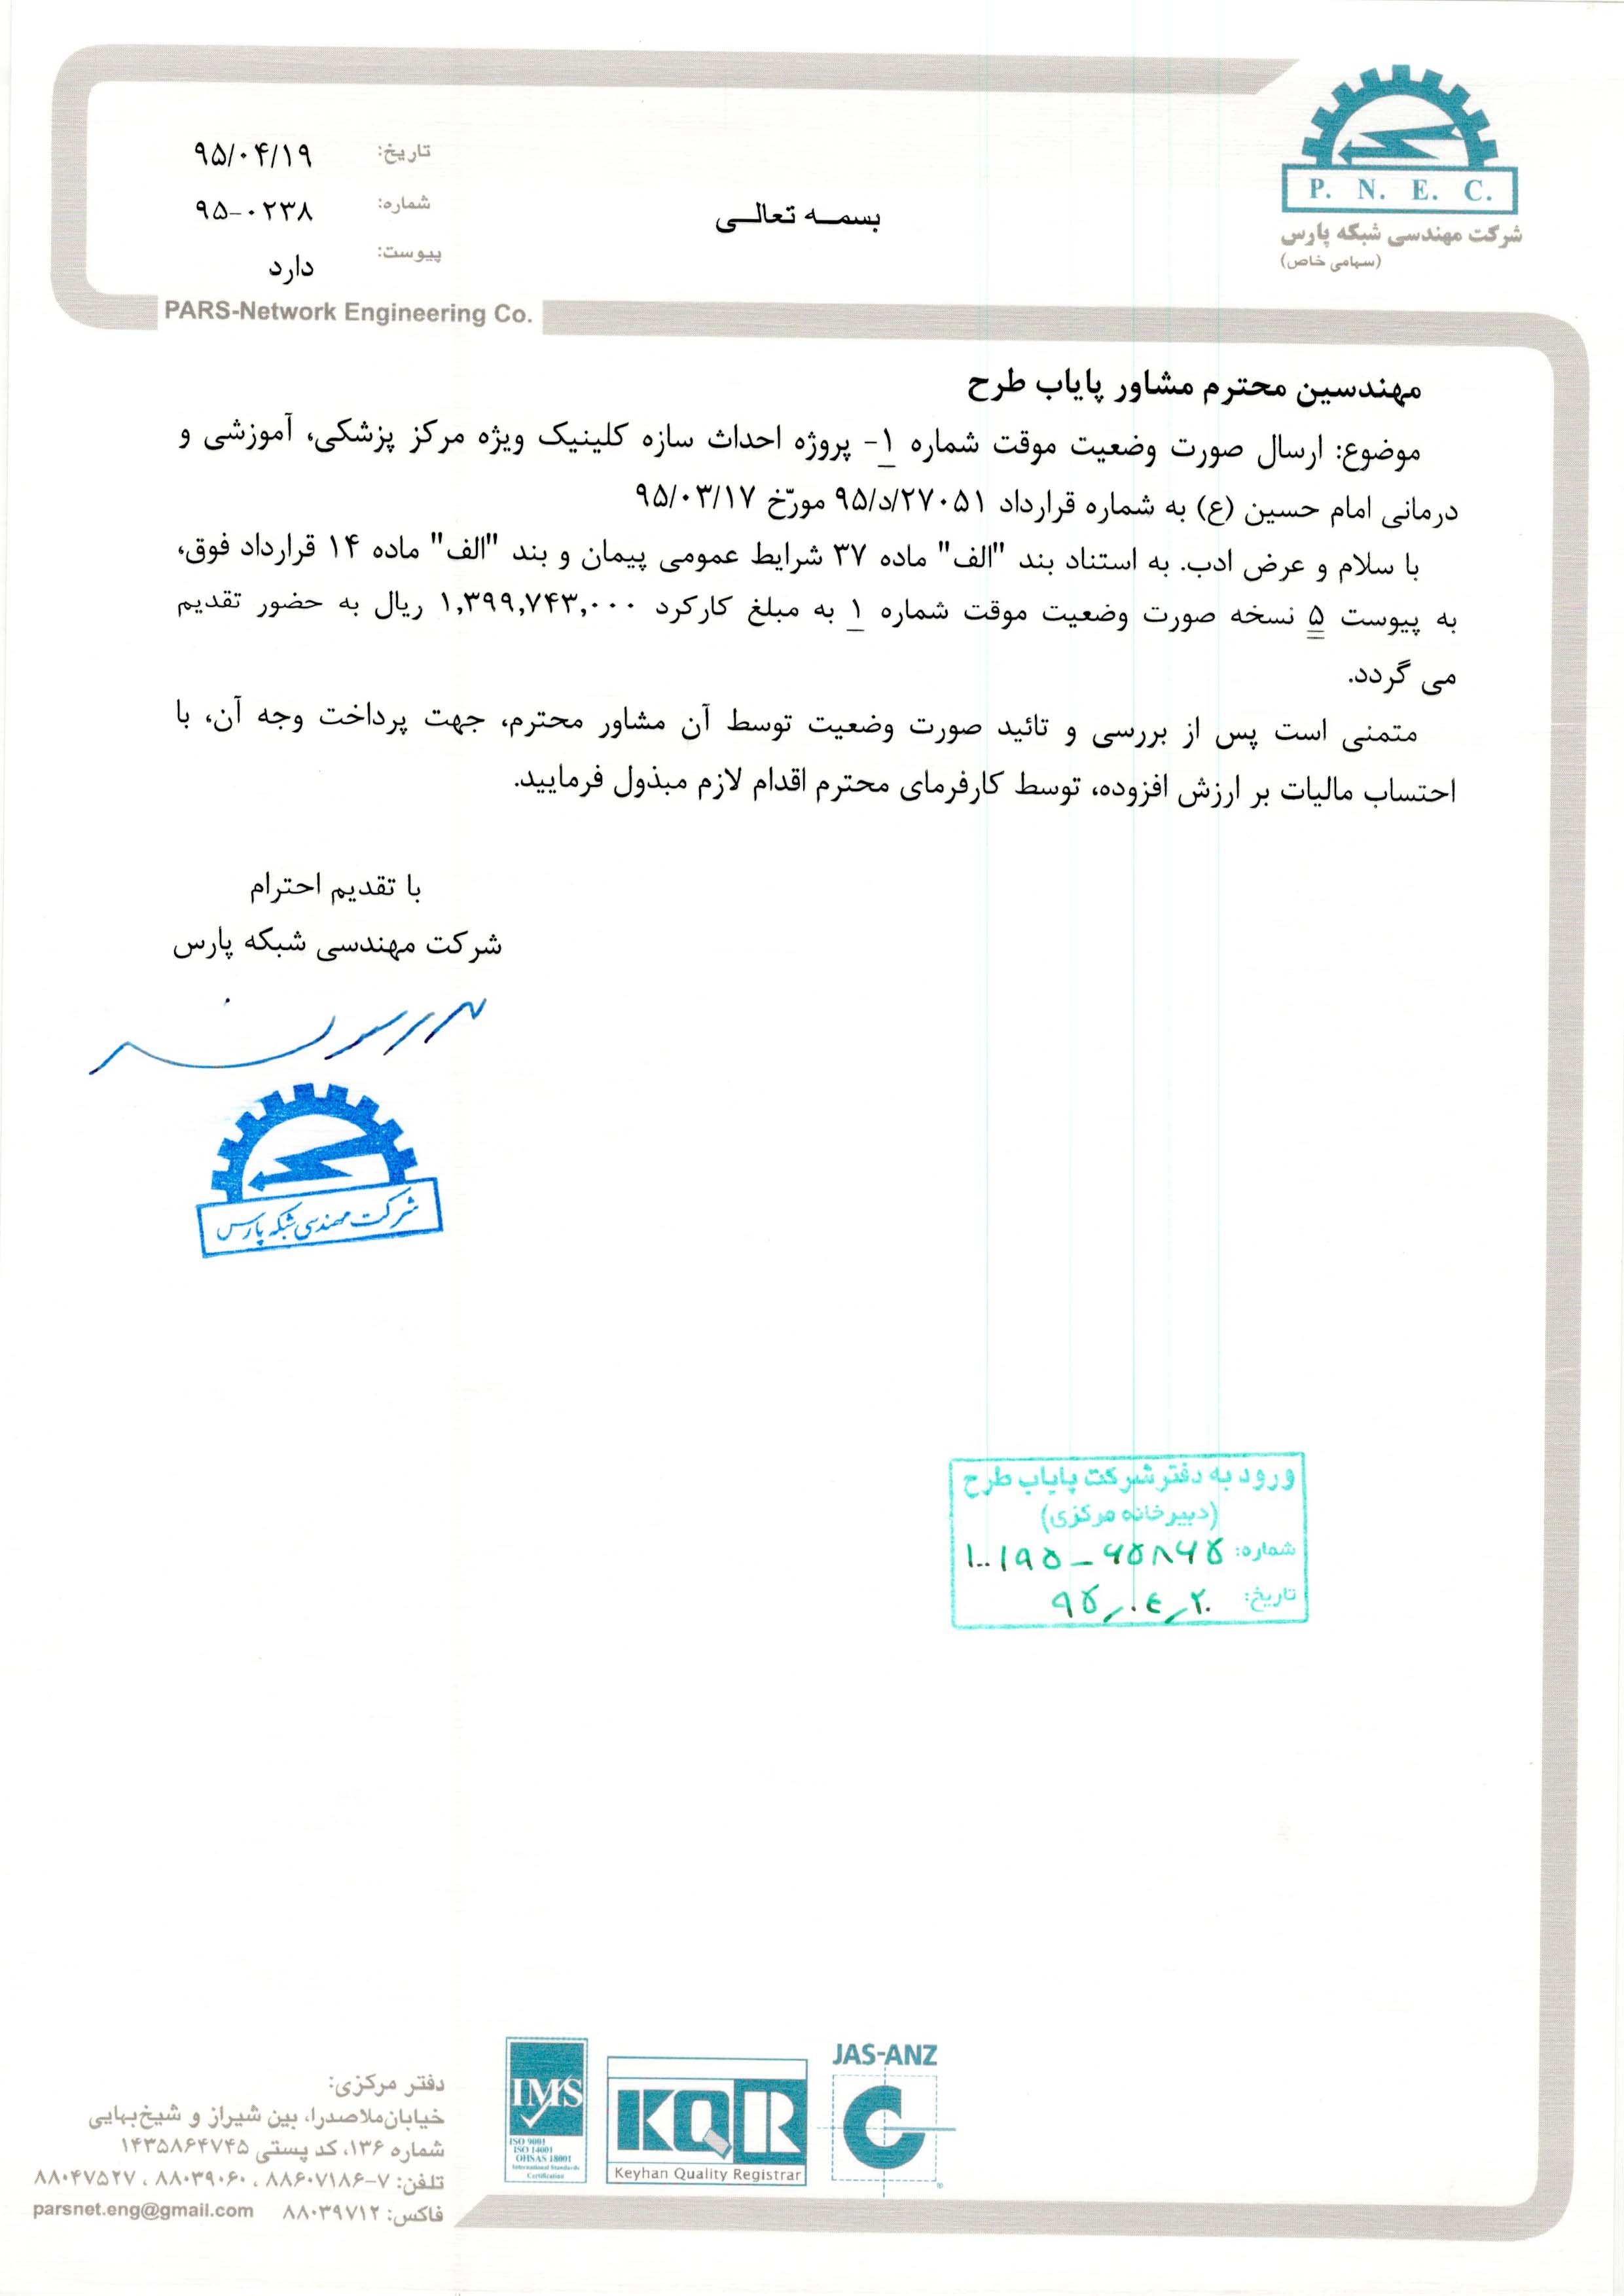 P. N. E. C.
شرکت مهندسی شبکه پارس
(سهامی خاص)
بسمه تعالی
تاریخ: ۹۵/۰۴/۱۹
شماره: ۹۵-۰۲۳۸
پیوست: دارد
PARS-Network Engineering Co.
مهندسین محترم مشاور پایاب طرح
موضوع: ارسال صورت وضعیت موقت شماره ۱- پروژه احداث سازه کلینیک ویژه مرکز پزشکی، آموزشی و
درمانی امام حسین (ع) به شماره قرارداد ۹۵/د/۲۷۰۵۱ مورّخ ۹۵/۰۳/۱۷
با سلام و عرض ادب. به استناد بند "الف" ماده ۳۷ شرایط عمومی پیمان و بند "الف" ماده ۱۴ قرارداد فوق،
به پیوست ۵ نسخه صورت وضعیت موقت شماره ۱ به مبلغ کارکرد ۱,۳۹۹,۷۴۳,۰۰۰ ریال به حضور تقدیم
می گردد.
متمنی است پس از بررسی و تائید صورت وضعیت توسط آن مشاور محترم، جهت پرداخت وجه آن، با
احتساب مالیات بر ارزش افزوده، توسط کارفرمای محترم اقدام لازم مبذول فرمایید.
با تقدیم احترام
شرکت مهندسی شبکه پارس
شرکت مهندسی شبکه پارس
ورود به دفتر شرکت پایاب طرح
(دبیرخانه مرکزی)
شماره:
تاریخ: ۹۵/۰۴/۲۰
JAS-ANZ
IMS
ISO 9001
ISO 14001
OHSAS 18001
International Standards
Certification
KQR
Keyhan Quality Registrar
دفتر مرکزی:
خیابان ملاصدرا، بین شیراز و شیخ‌بهایی
شماره ۱۳۶، کد پستی ۱۴۳۵۸۶۴۷۴۵
تلفن: ۷-۸۸۶۰۷۱۸۶ ، ۸۸۰۳۹۰۶۰ ، ۸۸۰۴۷۵۲۷
فاکس: ۸۸۰۳۹۷۱۲ parsnet.eng@gmail.com